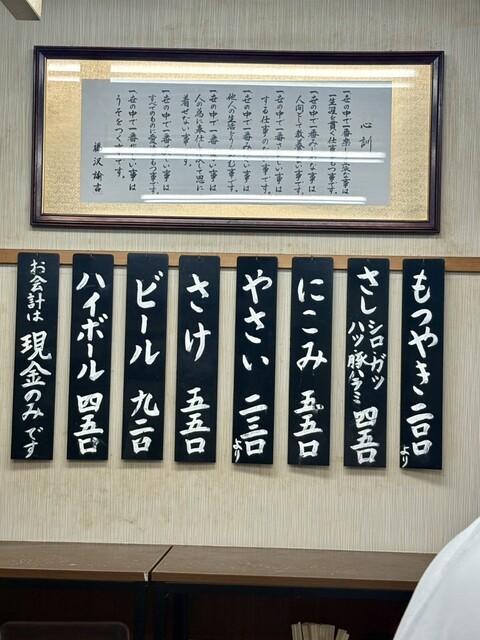 心訓
一、世の中で一番楽しく立派な事は
一生涯を貫く仕事をもつ事です。
一、世の中で一番みじめな事は
人間として教養のない事です。
一、世の中で一番さびしい事は
する仕事のない事です。
一、世の中で一番みにくい事は
他人の生活をうらやむ事です。
一、世の中で一番尊い事は
人の為に奉仕し決して恩に
着せない事です。
一、世の中で一番美しい事は
すべてのものに愛情をもつ事です。
一、世の中で一番悲しい事は
うそをつく事です。
福沢諭吉
もつやき 二〇〇より
さし シロ・ガツ
ハツ・豚ハラミ 四五〇
にこみ 五五〇
やさい 二三〇より
さけ 五五〇
ビール 九二〇
ハイボール 四五〇
お会計は現金のみです